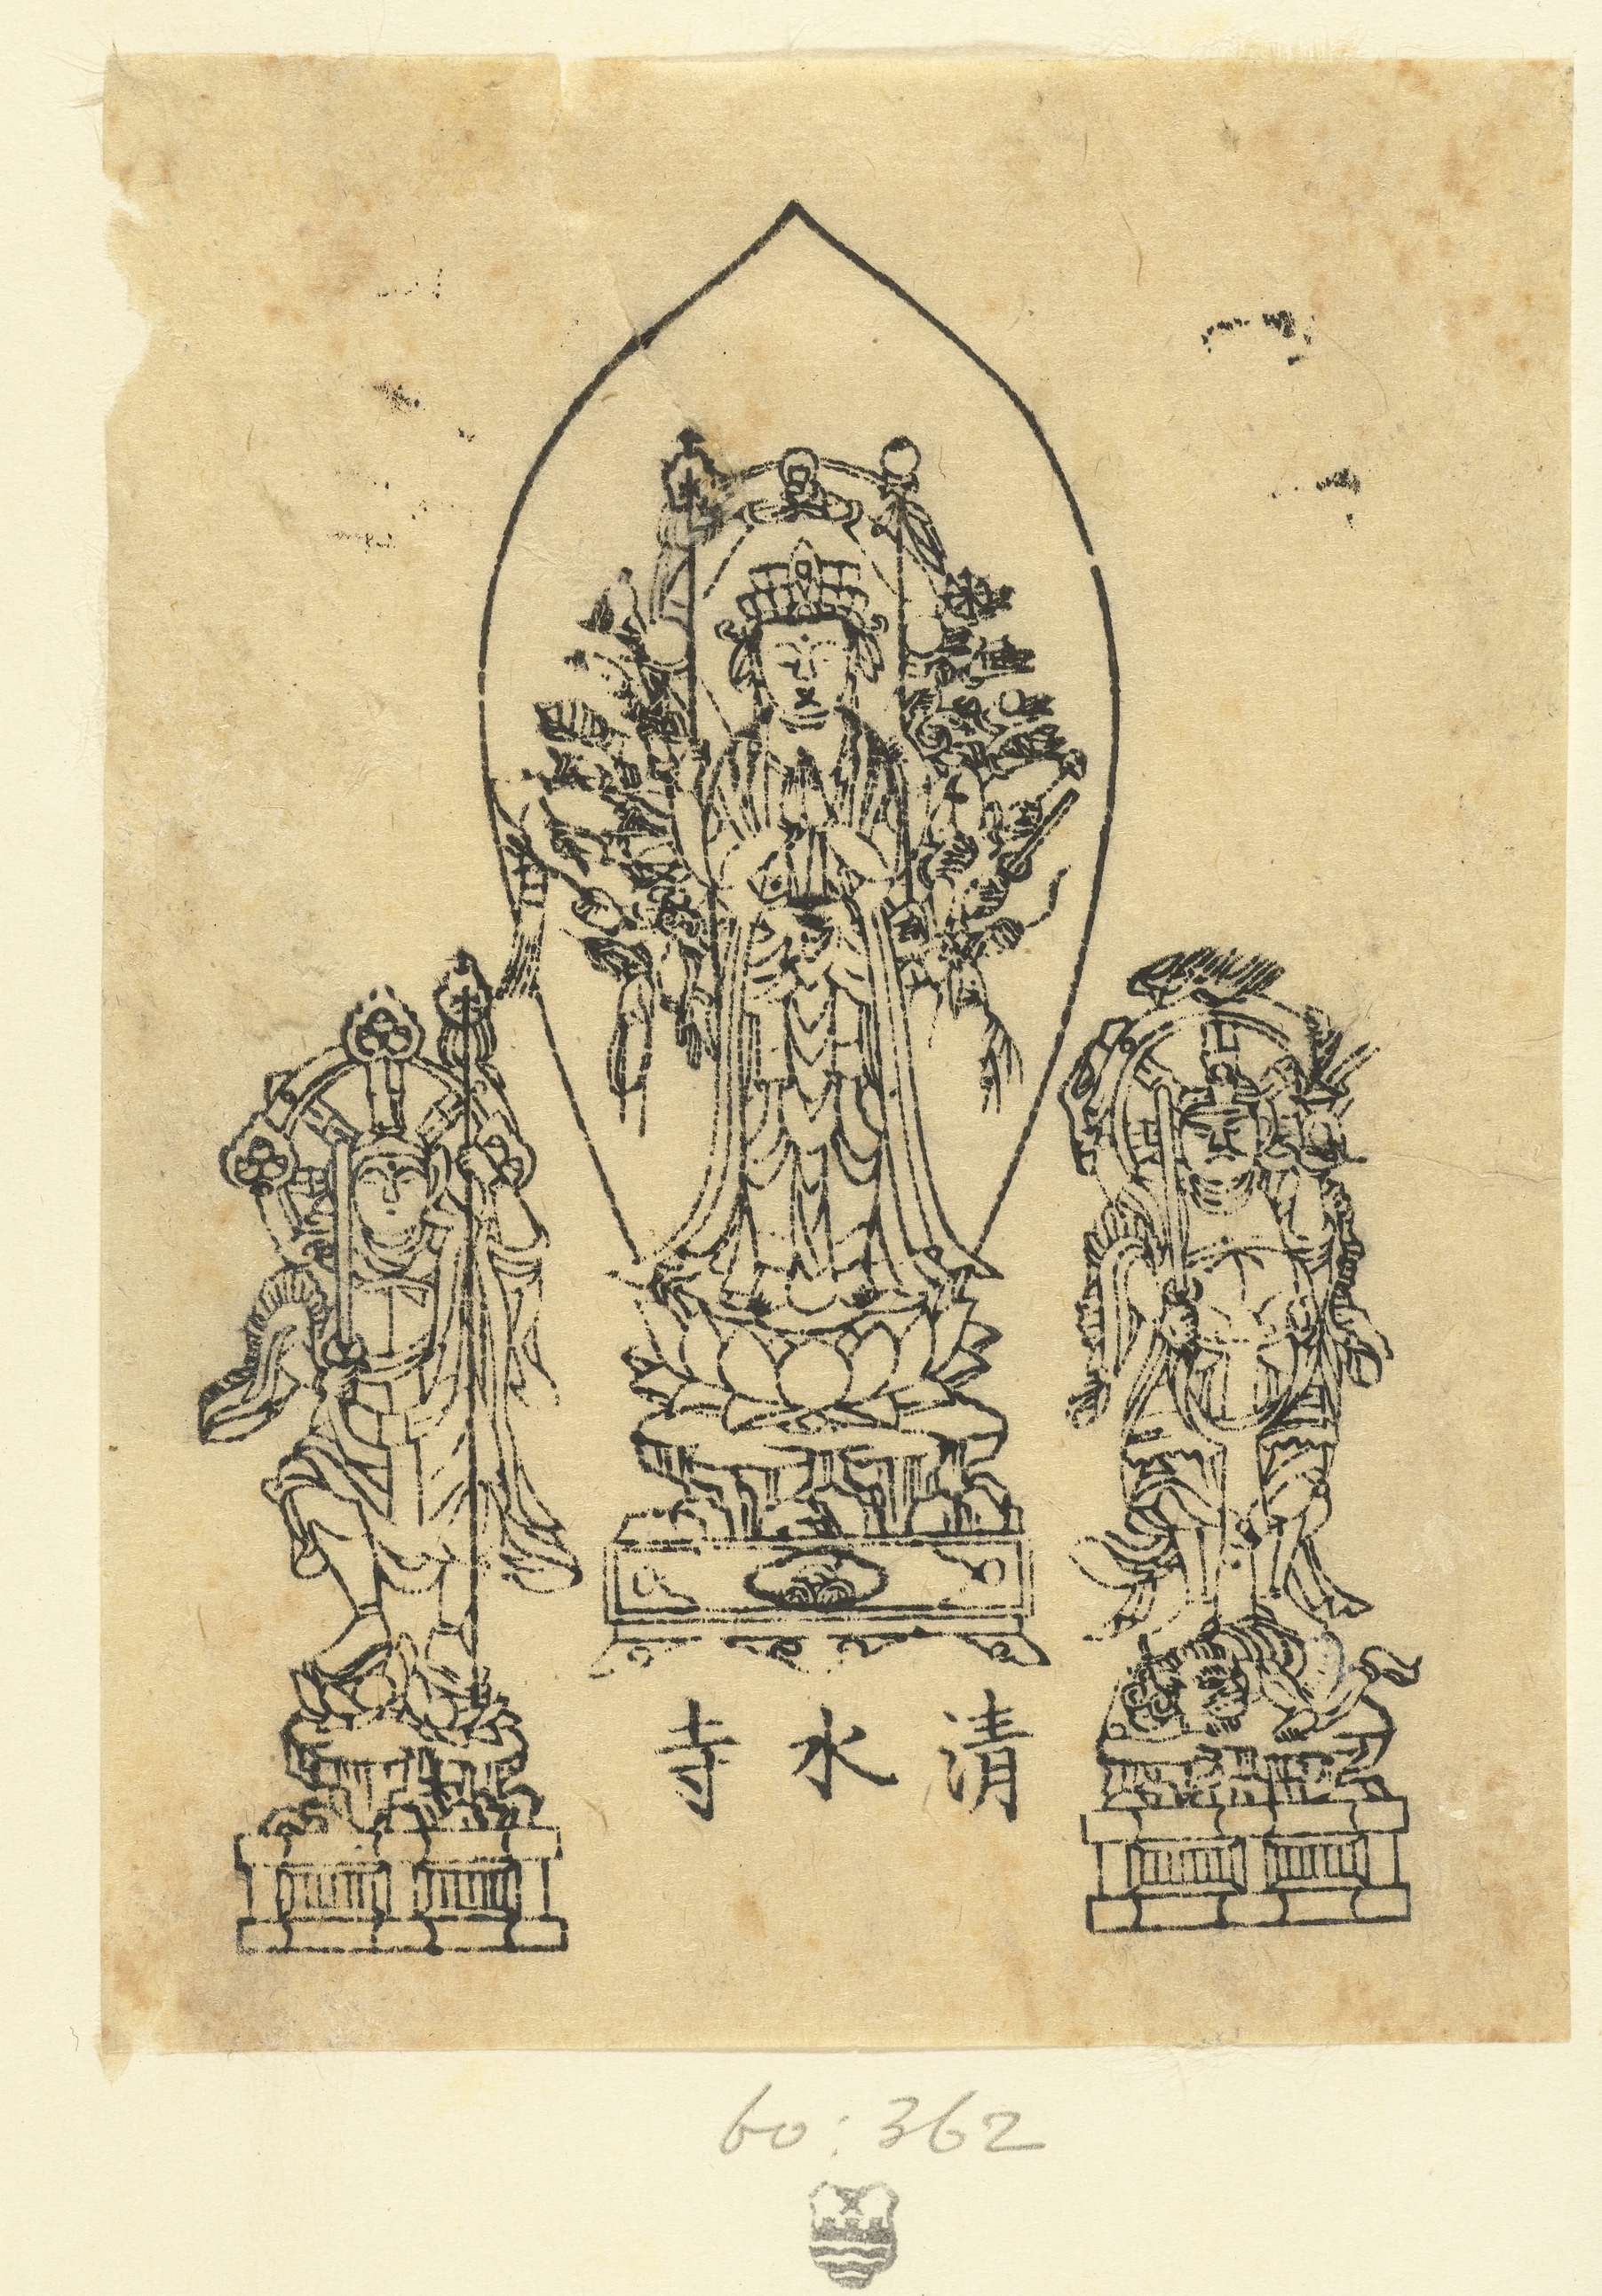 清水寺
60:362